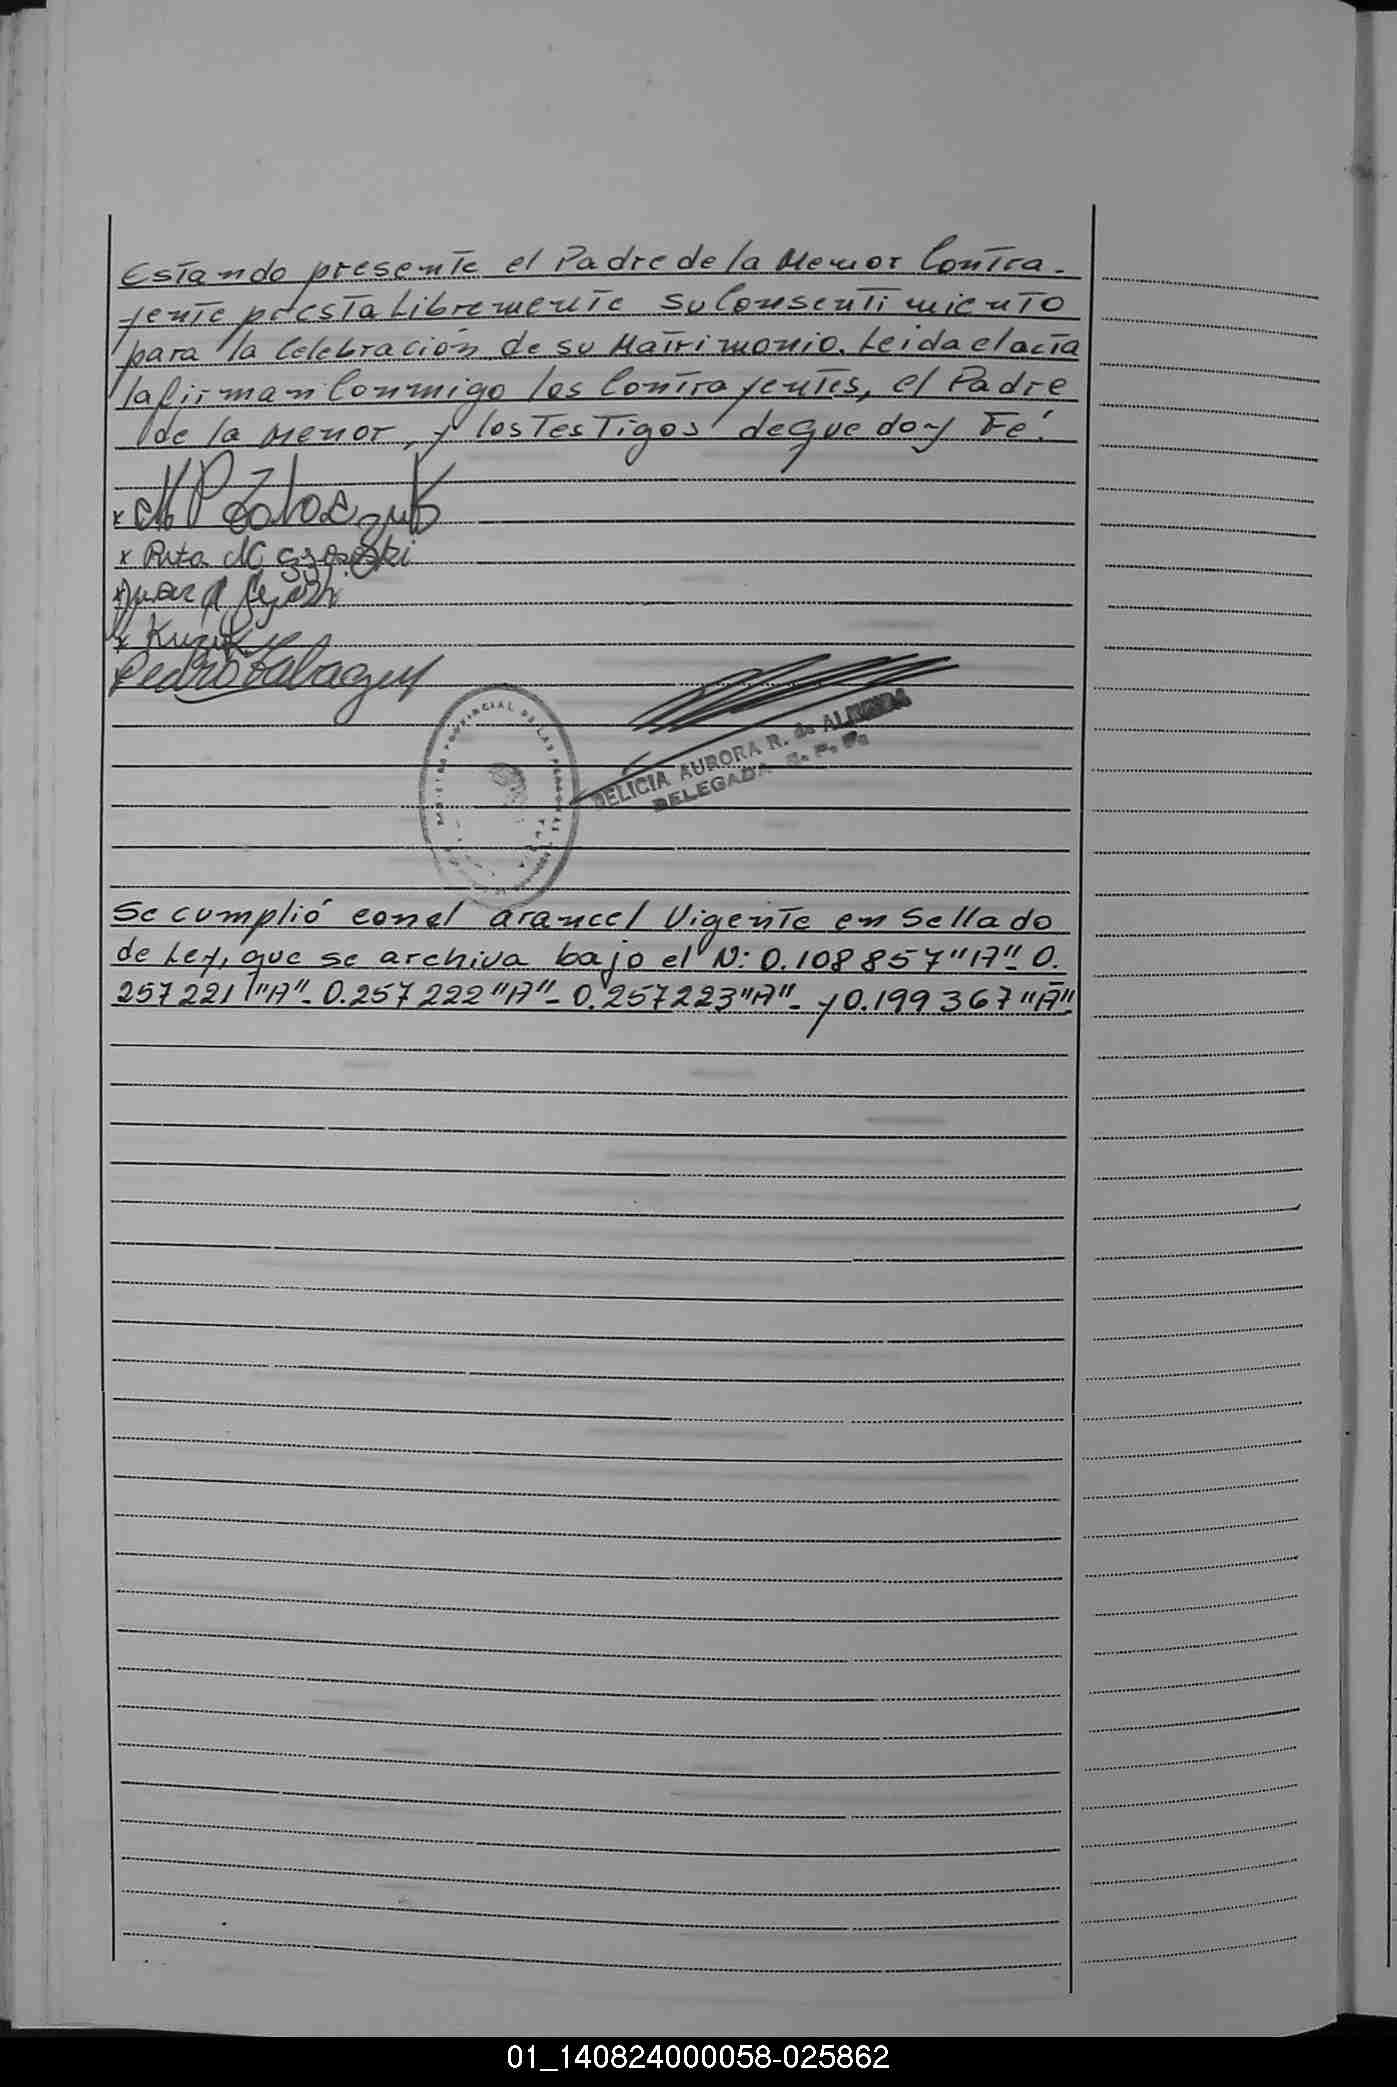 Estando presente el Padre de la Menor Contra-
yente presta Libremente su Consentimiento
para la Celebración de su Matrimonio. Leida el acta
la firman Conmigo los Contrayentes, el Padre
de la Menor, y los Testigos de que doy Fé.
x
x Rita
x
x
Pedro
REGISTRO PROVINCIAL DE LAS PERSONAS
DELICIA AURORA R. de ALMEDA
DELEGADA R. P. P.
Se cumplió con el arancel Vigente en Sellado
de Ley, que se archiva bajo el N: 0.108857 "A"- 0.
257221 "A"- 0.257222 "A"- 0.257223 "A"- y 0.199367 "A"-
01_140824000058-025862